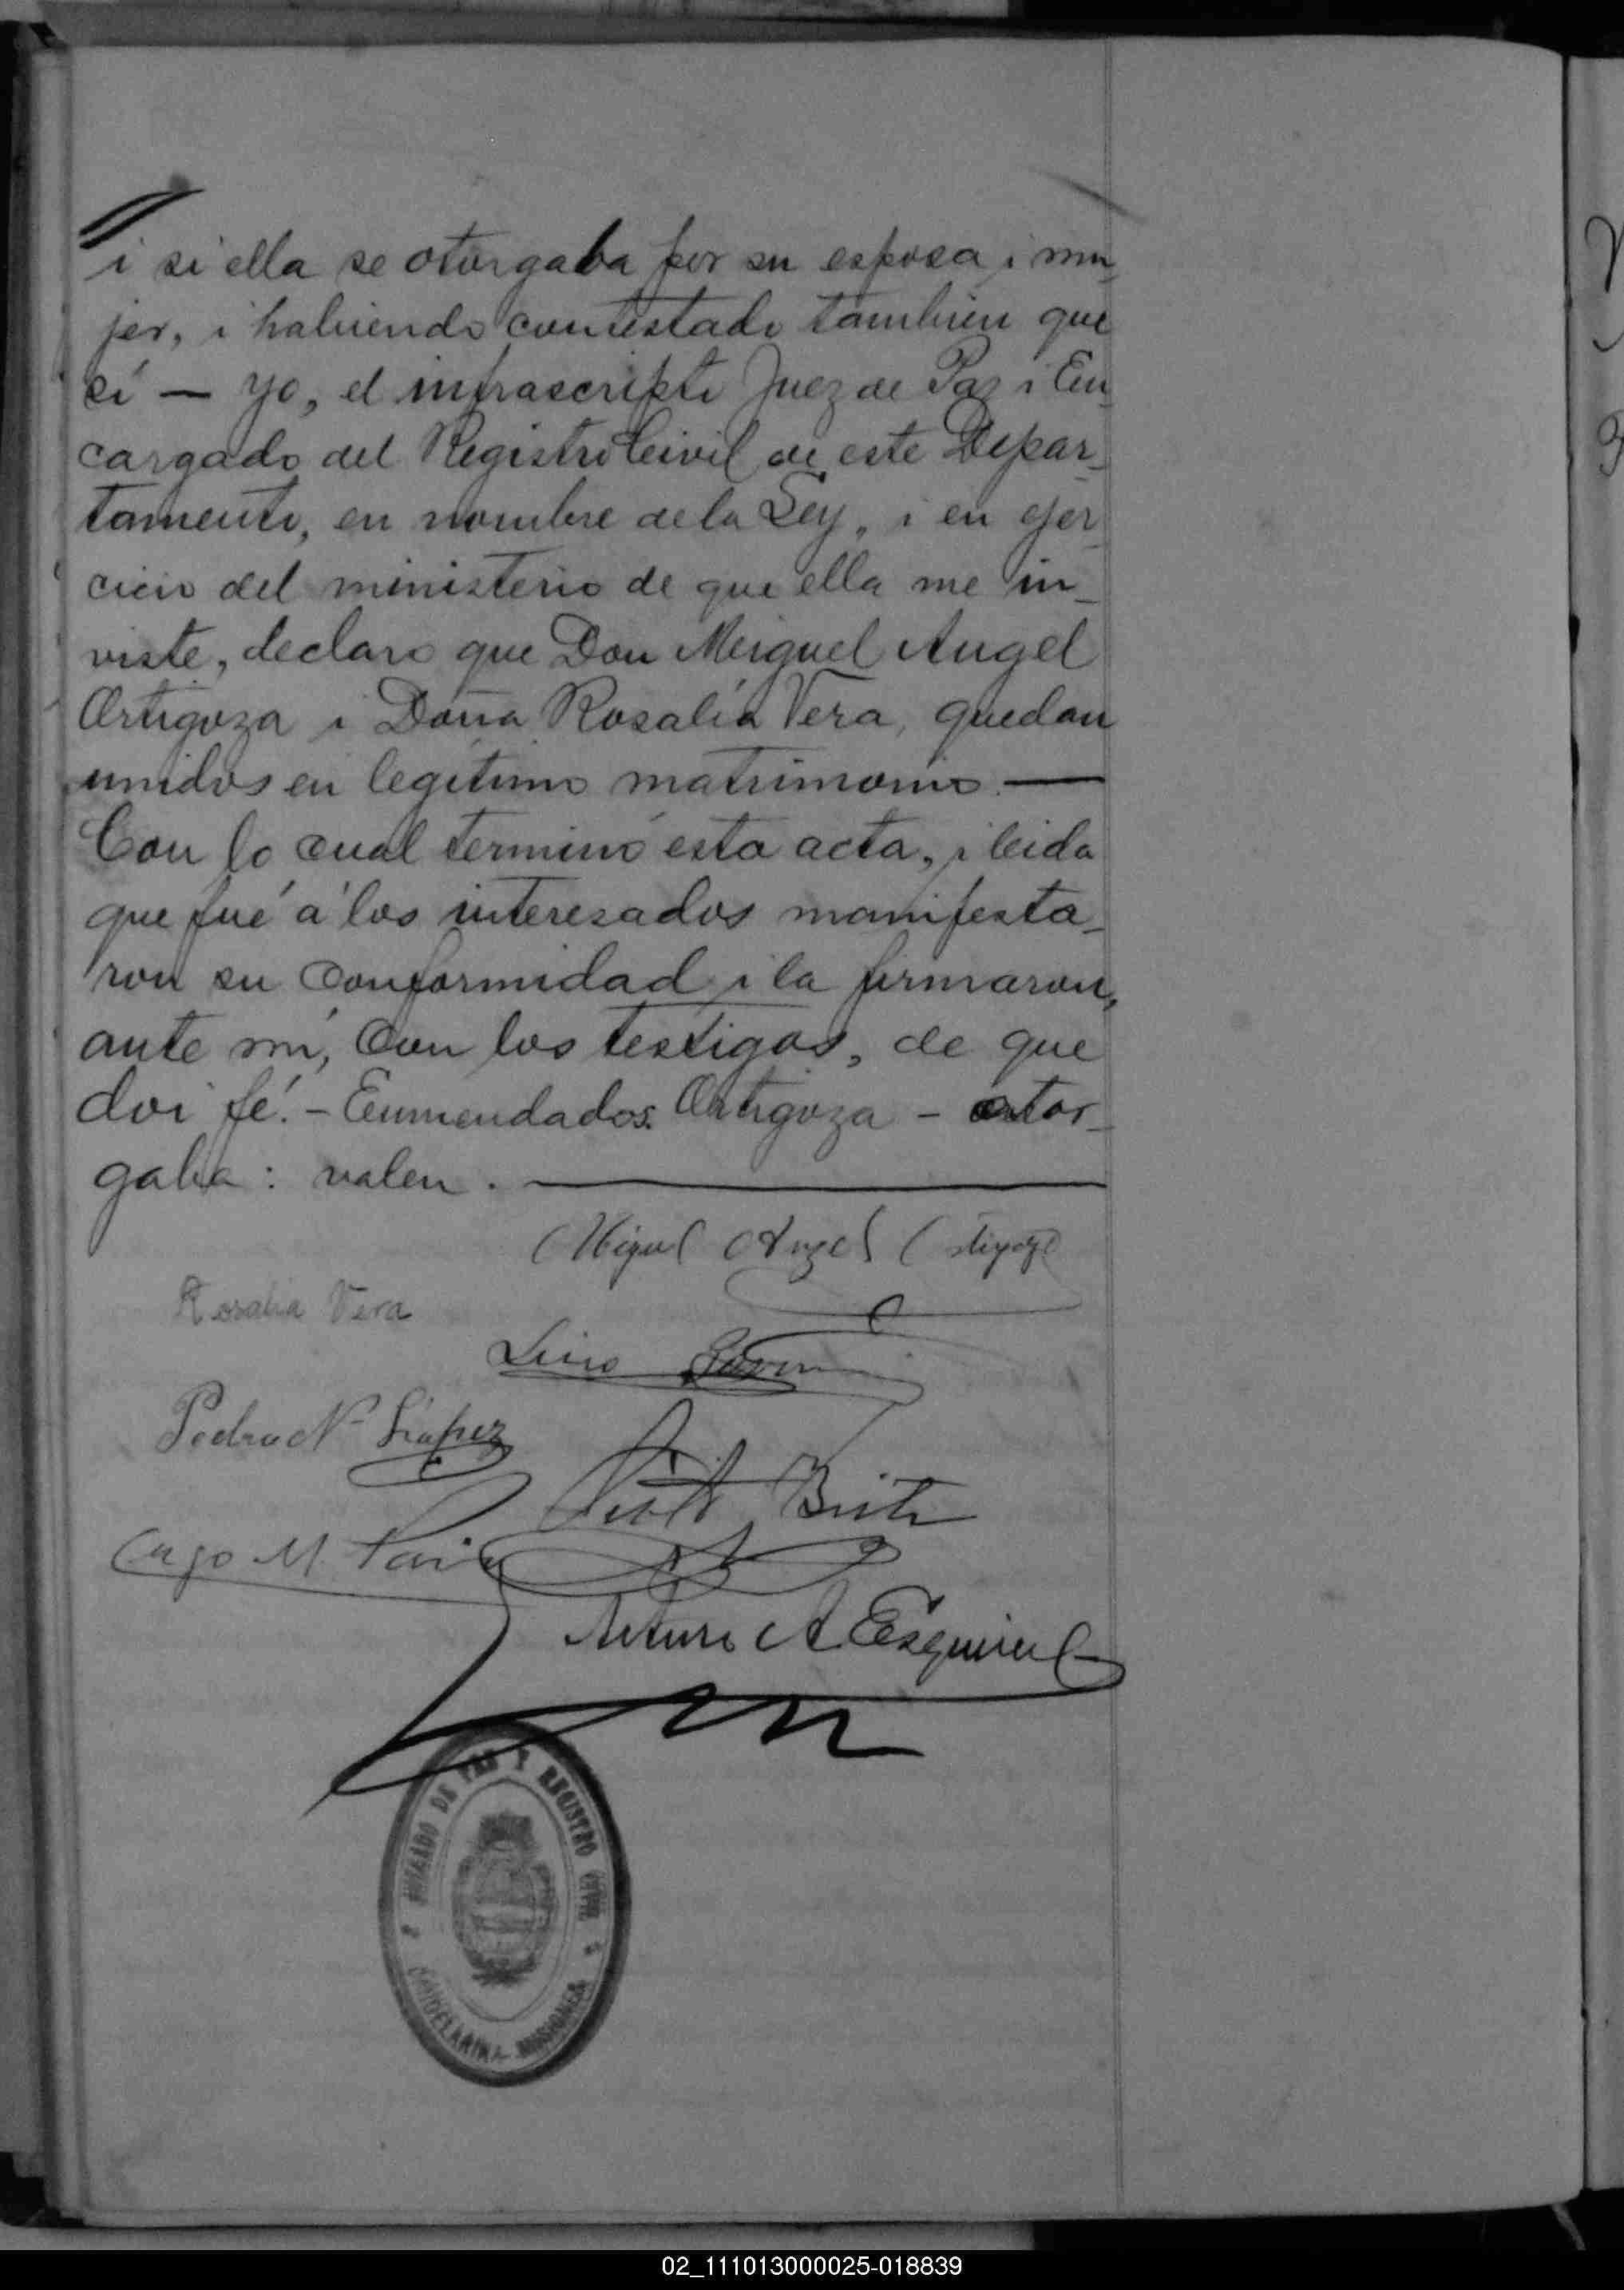 i si ella se otorgaba por su esposa i mu-
jer, i habiendo contestado tambien que
sí — yo, el infrascripto Juez de Paz i En-
cargado del Registro Civil de este Depar-
tamento, en nombre de la Ley, i en ejer-
cicio del ministerio de que ella me in-
viste, declaro que Don Meiguel Angel
Ortigoza i Doña Rosalía Vera, quedan
unidos en legítimo matrimonio. —
Con lo cual terminó esta acta, i leida
que fué á los interesados manifesta-
ron su conformidad i la firmaron,
ante mí, con los testigos, de que
doi fé. - Enmendados: Ortigoza - otor-
gaba: valen. —
Miguel Angel Ortigoza
Rosalia Vera
Lino
Pedro N. López
Brite
M.
Arturo A. Esquivel
JUZGADO DE PAZ Y REGISTRO CIVIL
CANDELARIA - MISIONES
02_111013000025-018839